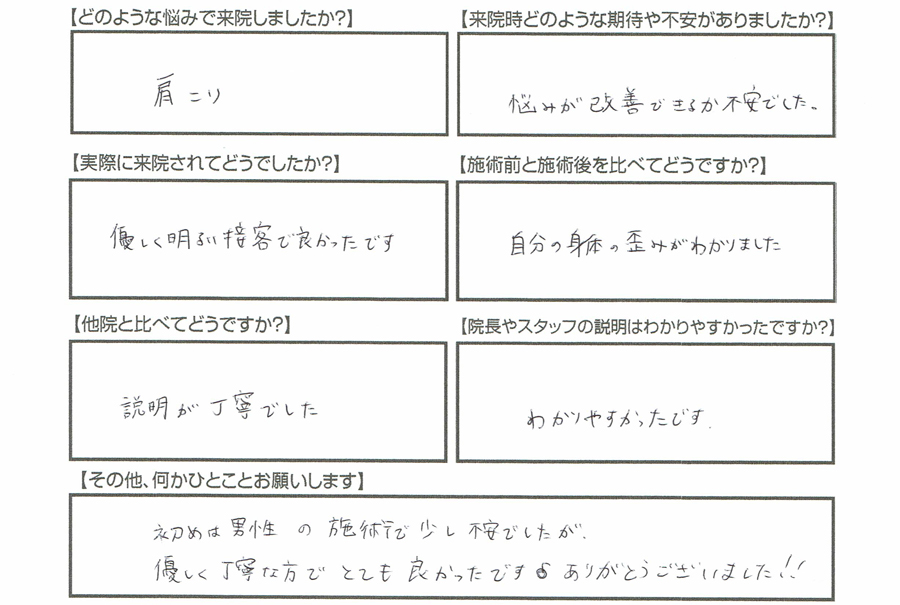 【どのような悩みで来院しましたか?】
肩こり
【来院時どのような期待や不安がありましたか?】
悩みが改善できるか不安でした。
【実際に来院されてどうでしたか?】
優しく明るい接客で良かったです
【施術前と施術後を比べてどうですか?】
自分の身体の歪みがわかりました
【他院と比べてどうですか?】
説明が丁寧でした
【院長やスタッフの説明はわかりやすかったですか?】
わかりやすかったです.
【その他、何かひとことお願いします】
初めは男性の施術で少し不安でしたが、
優しく丁寧な方でとても良かったです♪ありがとうございました!!